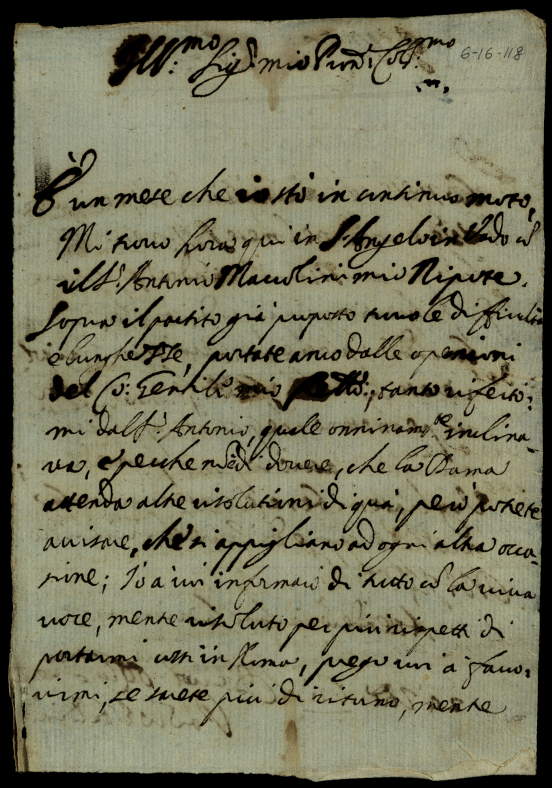 Ill.mo Sig.r mio Pron. Col.mo
6-16-118
È un mese che io sto in continuo moto,
Mi trovo hora qui in S. Angelo in Vado co
il S.r Antonio Maccolini mio Nipote.
Sopra il partito già proposto trovo le difficultà
e lunghezze, portate anco dalle openioni
del Co: Gentili mio tanto riferito:
mi dal S.r Antonio, quale onninam.te inclina-
va, e perche dovere, che la Dama
attenda altre risolutioni di quà, però potete
avisare, che si appigliano ad ogni altra occa-
sione; Io a voi informarò di tutto co la viva
voce, mentre risoluto per più rispetti di
portarmi costì in Roma, prego vi a favo-
rirmi, se sarete più di ritorno, mentre